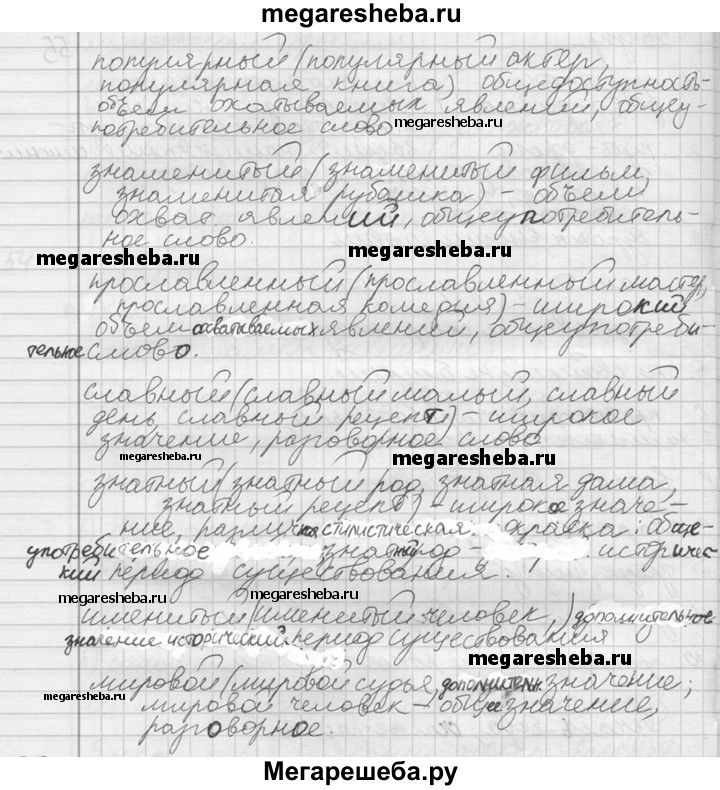 megaresheba.ru
популярный (популярный актёр,
популярная книга) общедоступность-
объём охватываемых явлений, общеу-
потребительное слово
megaresheba.ru
знаменитый (знаменитый фильм,
знаменитая рубашка) - объём
охват явлений, общеупотребитель-
ное слово.
megaresheba.ru
megaresheba.ru
прославленный (прославленный мастер,
прославленная комедия) - широкий
объём охватываемых явлений, общеупотреби-
тельное слово.
славный (славный малый, славный
день славный рецепт) - широкое
значение, разговорное слово
megaresheba.ru
megaresheba.ru
знатный (знатный род, знатная дама,
знатный рецепт) - широкое значе-
ние, различная стилистическая окраска: обще-
употребительное знатный род - историчес-
кий период существования.
megaresheba.ru
megaresheba.ru
именитый (именитый человек,) дополнительное
значение исторический период существования
megaresheba.ru
мировой (мировой судья, дополнительн. значение;
megaresheba.ru
мировой человек - общее значение,
разговорное.
Мегарешеба.ру